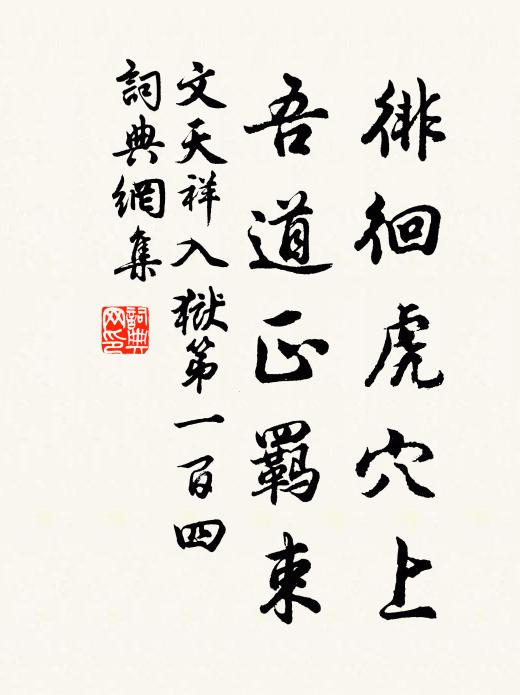 徘徊虎穴上
吾道正羁束
文天祥入獄第一百四
詞典網集
詞典网印